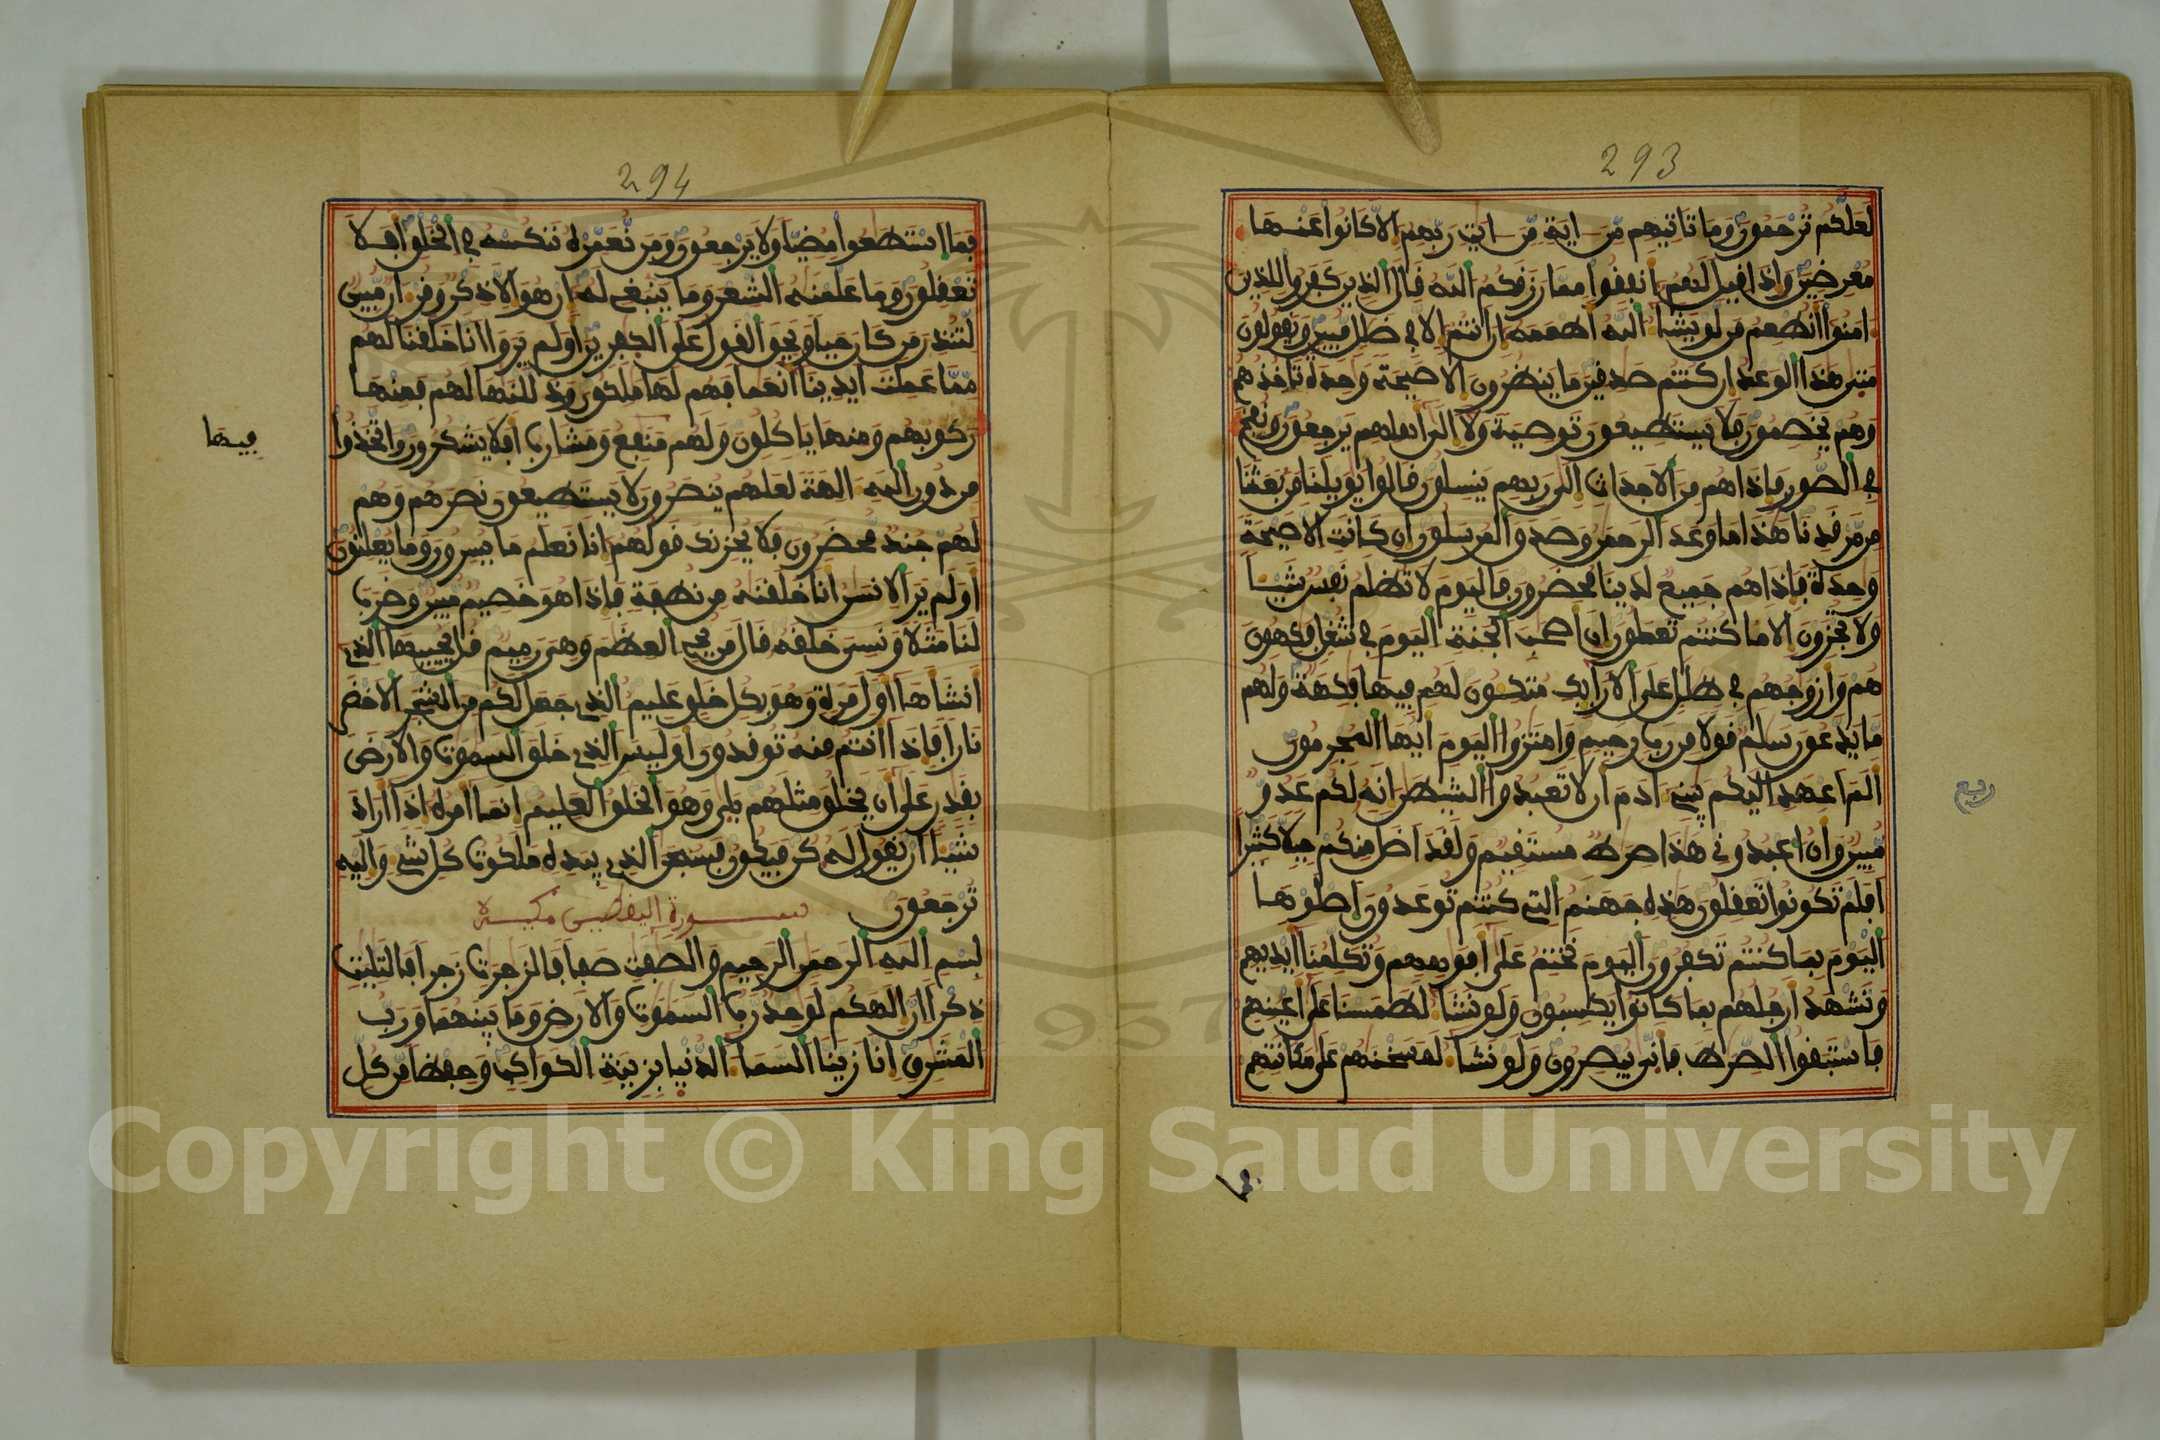 293
لعلكم ترحمون وما تاتيهم من اية من ايت ربهم الا كانوا عنها
معرضين واذا فيل لهم انبفوا مما رزفكم الله فال الذين كبروا للذين
امنوا انطعم من لو يشا الله اطعمه ان انتم الا في ضلل مبين ويفولون
متى هذا الوعد ان كنتم صدفين ما ينظرون الا صيحة وحدة تاخذهم
وهم يخصمون فلا يستطيعون توصية ولا الى اهلهم يرجعون ونبخ
في الصور فاذا هم من الاجداث الى ربهم ينسلون فالوا يويلنا من بعثنا
من مرفدنا هذا ما وعد الرحمن وصدو المرسلون ان كانت الا صيحة
وحدة فاذا هم جميع لدينا محضرون فاليوم لا تظلم نبس شيا
ولا تجزون الا ما كنتم تعملون ان اصحب الجنة اليوم في شغل بكهون
هم وازوجهم في ظلل على الارايك متكون لهم بيها بكهة ولهم
ما يدعون سلم فولا من رب رحيم وامتزوا اليوم ايها المجرمون
ربع
الم اعهد اليكم يبني ادم ان لا تعبدوا الشيطن انه لكم عدو
مبين وان اعبدوني هذا صرط مستفيم ولفد اضل منكم جبلا كثيرا
ابلم تكونوا تعفلون هذه جهنم التي كنتم توعدون اصلوها
اليوم بما كنتم تكبرون اليوم نختم على ابوههم وتكلمنا ايديهم
وتشهد ارجلهم بما كانوا يكسبون ولو نشا لطمسنا على اعينهم
باستبفوا الصرط بانى يبصرون ولو نشا لمسخنهم على مكانتهم
294
بما استطعوا مضيا ولا يرجعون ومن نعمره ننكسه في الخلو ابلا
تعفلون وما علمنه الشعر وما ينبغي له ان هو الا ذكر وفران مبين
لتنذر من كان حيا ويحو الفول على الكبرين اولم يروا انا خلفنا لهم
مما عملت ايدينا انعما بهم لها ملكون وذللنها لهم بمنها
ركوبهم ومنها ياكلون ولهم بيها منبع ومشارب ابلا يشكرون واتخذوا
من دون الله الهة لعلهم ينصرون لا يستطيعون نصرهم وهم
لهم جند محضرون بلا يحزنك فولهم انا نعلم ما يسرون وما يعلنون
اولم ير الانسن انا خلفنه من نطبة باذا هو خصيم مبين وضرب
لنا مثلا ونسي خلفه فال من يحي العظم وهي رميم فل يحييها الذي
انشاها اول مرة وهو بكل خلو عليم الذي جعل لكم من الشجر الاخضر
نارا باذا انتم منه توفدون اوليس الذي خلو السموت والارض
بفدر على ان يخلو مثلهم بلى وهو الخلو العليم انما امره اذا اراد
شيا ان يفول له كن بيكون بسبحن الذي بيده ملكوت كل شي واليه
ترجعون سورة اليفطين مكية
بسم الله الرحمن الرحيم والصبت صبا بالزجرت زجرا بالتليت
ذكرا ان الهكم لوحد رب السموت والارض وما بينهما ورب
المشرو انا زينا السما الدنيا بزينة الكواكب وحبظا من كل
Copyright © King Saud University
1957